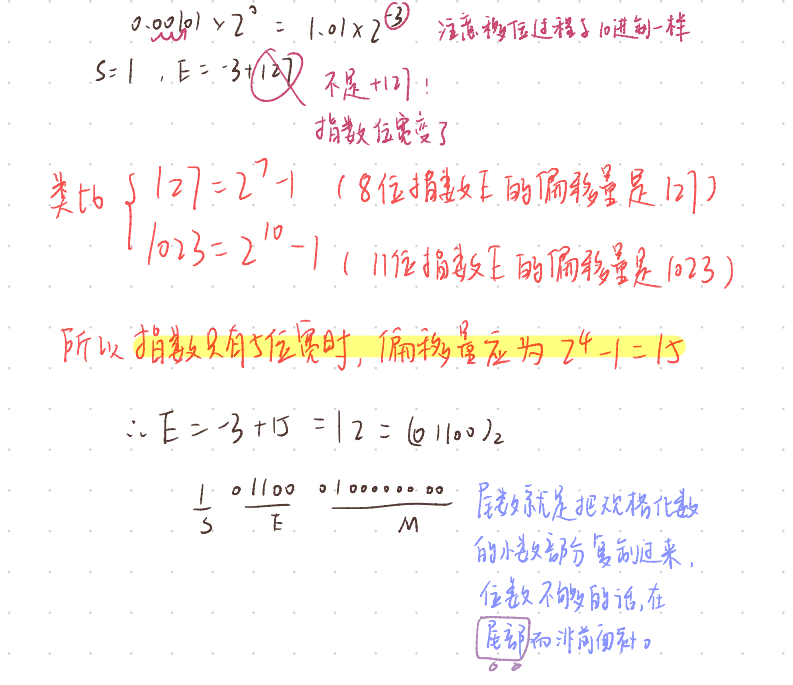 0.00101 × 2⁰ = 1.01 × 2⁻³ 注意移位过程与10进制一样
S=1 , E = -3+127 不是+127!
指数位宽变了
类比 { 127 = 2⁷-1 (8位指数E的偏移量是127)
1023 = 2¹⁰-1 (11位指数E的偏移量是1023)
所以 指数只有5位宽时, 偏移量应为 2⁴-1=15
∴ E = -3+15 = 12 = (01100)₂
1 01100 0100000000
S E M
尾数就是把规格化数
的小数部分复制过来,
位数不够的话,在
尾部而非前面补。